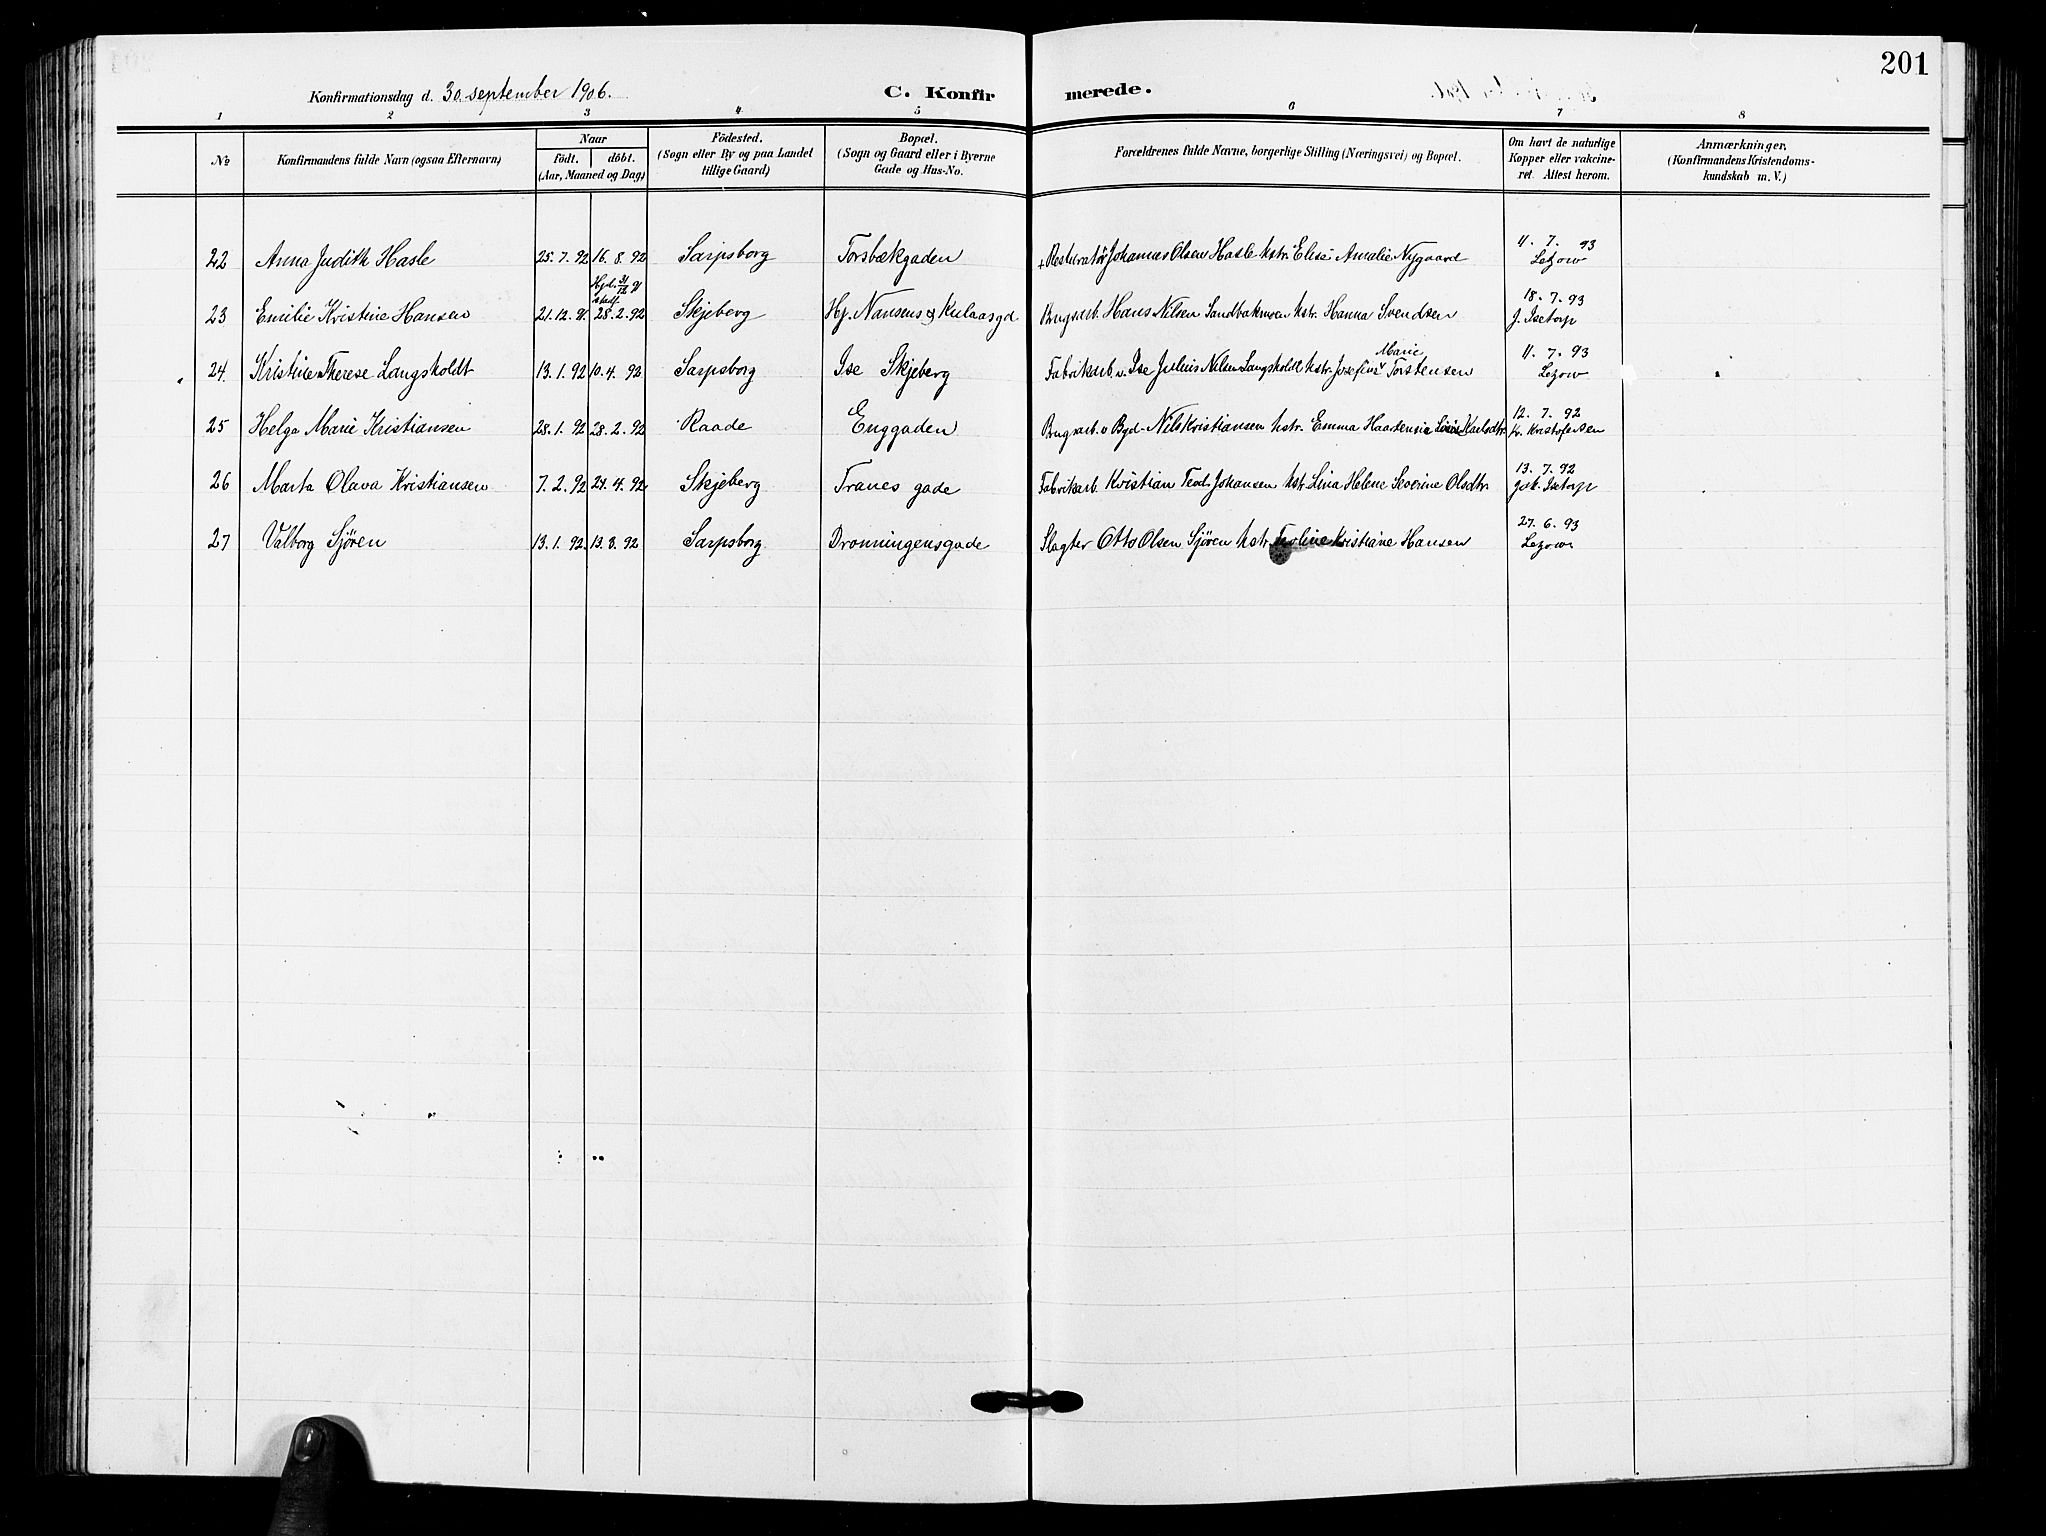 201
Konfirmationsdag d. 30. september 1906. C. Konfirmerede.
1 2 3 4 5 6 7 8
No
Konfirmandens fulde Navn (ogsaa Efternavn)
Naar
födt. döbt.
(Aar, Maaned og Dag)
Födested.
(Sogn eller By og paa Landet
tillige Gaard)
Bopæl.
(Sogn og Gaard eller i Byerne
Gade og Hus-No.
Forældrenes fulde Navne, borgerlige Stilling (Næringsvei) og Bopæl.
Om havt de naturlige
Kopper eller vakcine-
ret. Attest herom.
Anmærkninger.
(Konfirmandens Kristendoms-
kundskab m. V.)
22 Anna Judith Hasle 25. 7. 92 16. 8. 92 Sarpsborg Torsbækgaden + Resturatör Johannes Olsen Hasle hstr. Elise Amalie Nygaard 11. 7. 93
Letzow
Hjd. 31/12 91
stadf.
23 Emilie Kristine Hansen 21. 12. 91. 28. 2. 92 Skjeberg Hj. Nansens & Kulaasgd Brugsarb. Hans Nilsen Sandbakmoen hstr. Hanna Svendsen 18. 7. 93
J. Isetorp
24. Kristine Therese Langsholdt 13. 1. 92 10. 4. 92 Sarpsborg Ise Skjeberg Fabrikarb. v. Ise Julius Nilsen Langsholdt hstr. Josefine Marie Torstensen 11. 7. 93
Letzow
25 Helga Marie Kristiansen 28. 1. 92 28. 2. 92 Raade Enggaden Brugsarb. v Byd- Nils Kristiansen hstr. Emma Karlsdtr. 12. 7. 92
Kr. Kristofersen
26 Marta Olava Kristiansen 7. 2. 92 24. 4. 92 Skjeberg Tranes gade Fabrikarb. Kristian Teod. Johansen hstr. Lina Helene Severine Olsdtr. 13. 7. 92
Joh. Isetorp
27 Valborg Sjören 13. 1. 92. 13. 3. 92 Sarpsborg Dronningensgade Slagter Otto Olsen Sjören hstr. Kristiane Hansen 27. 6. 93
Letzow